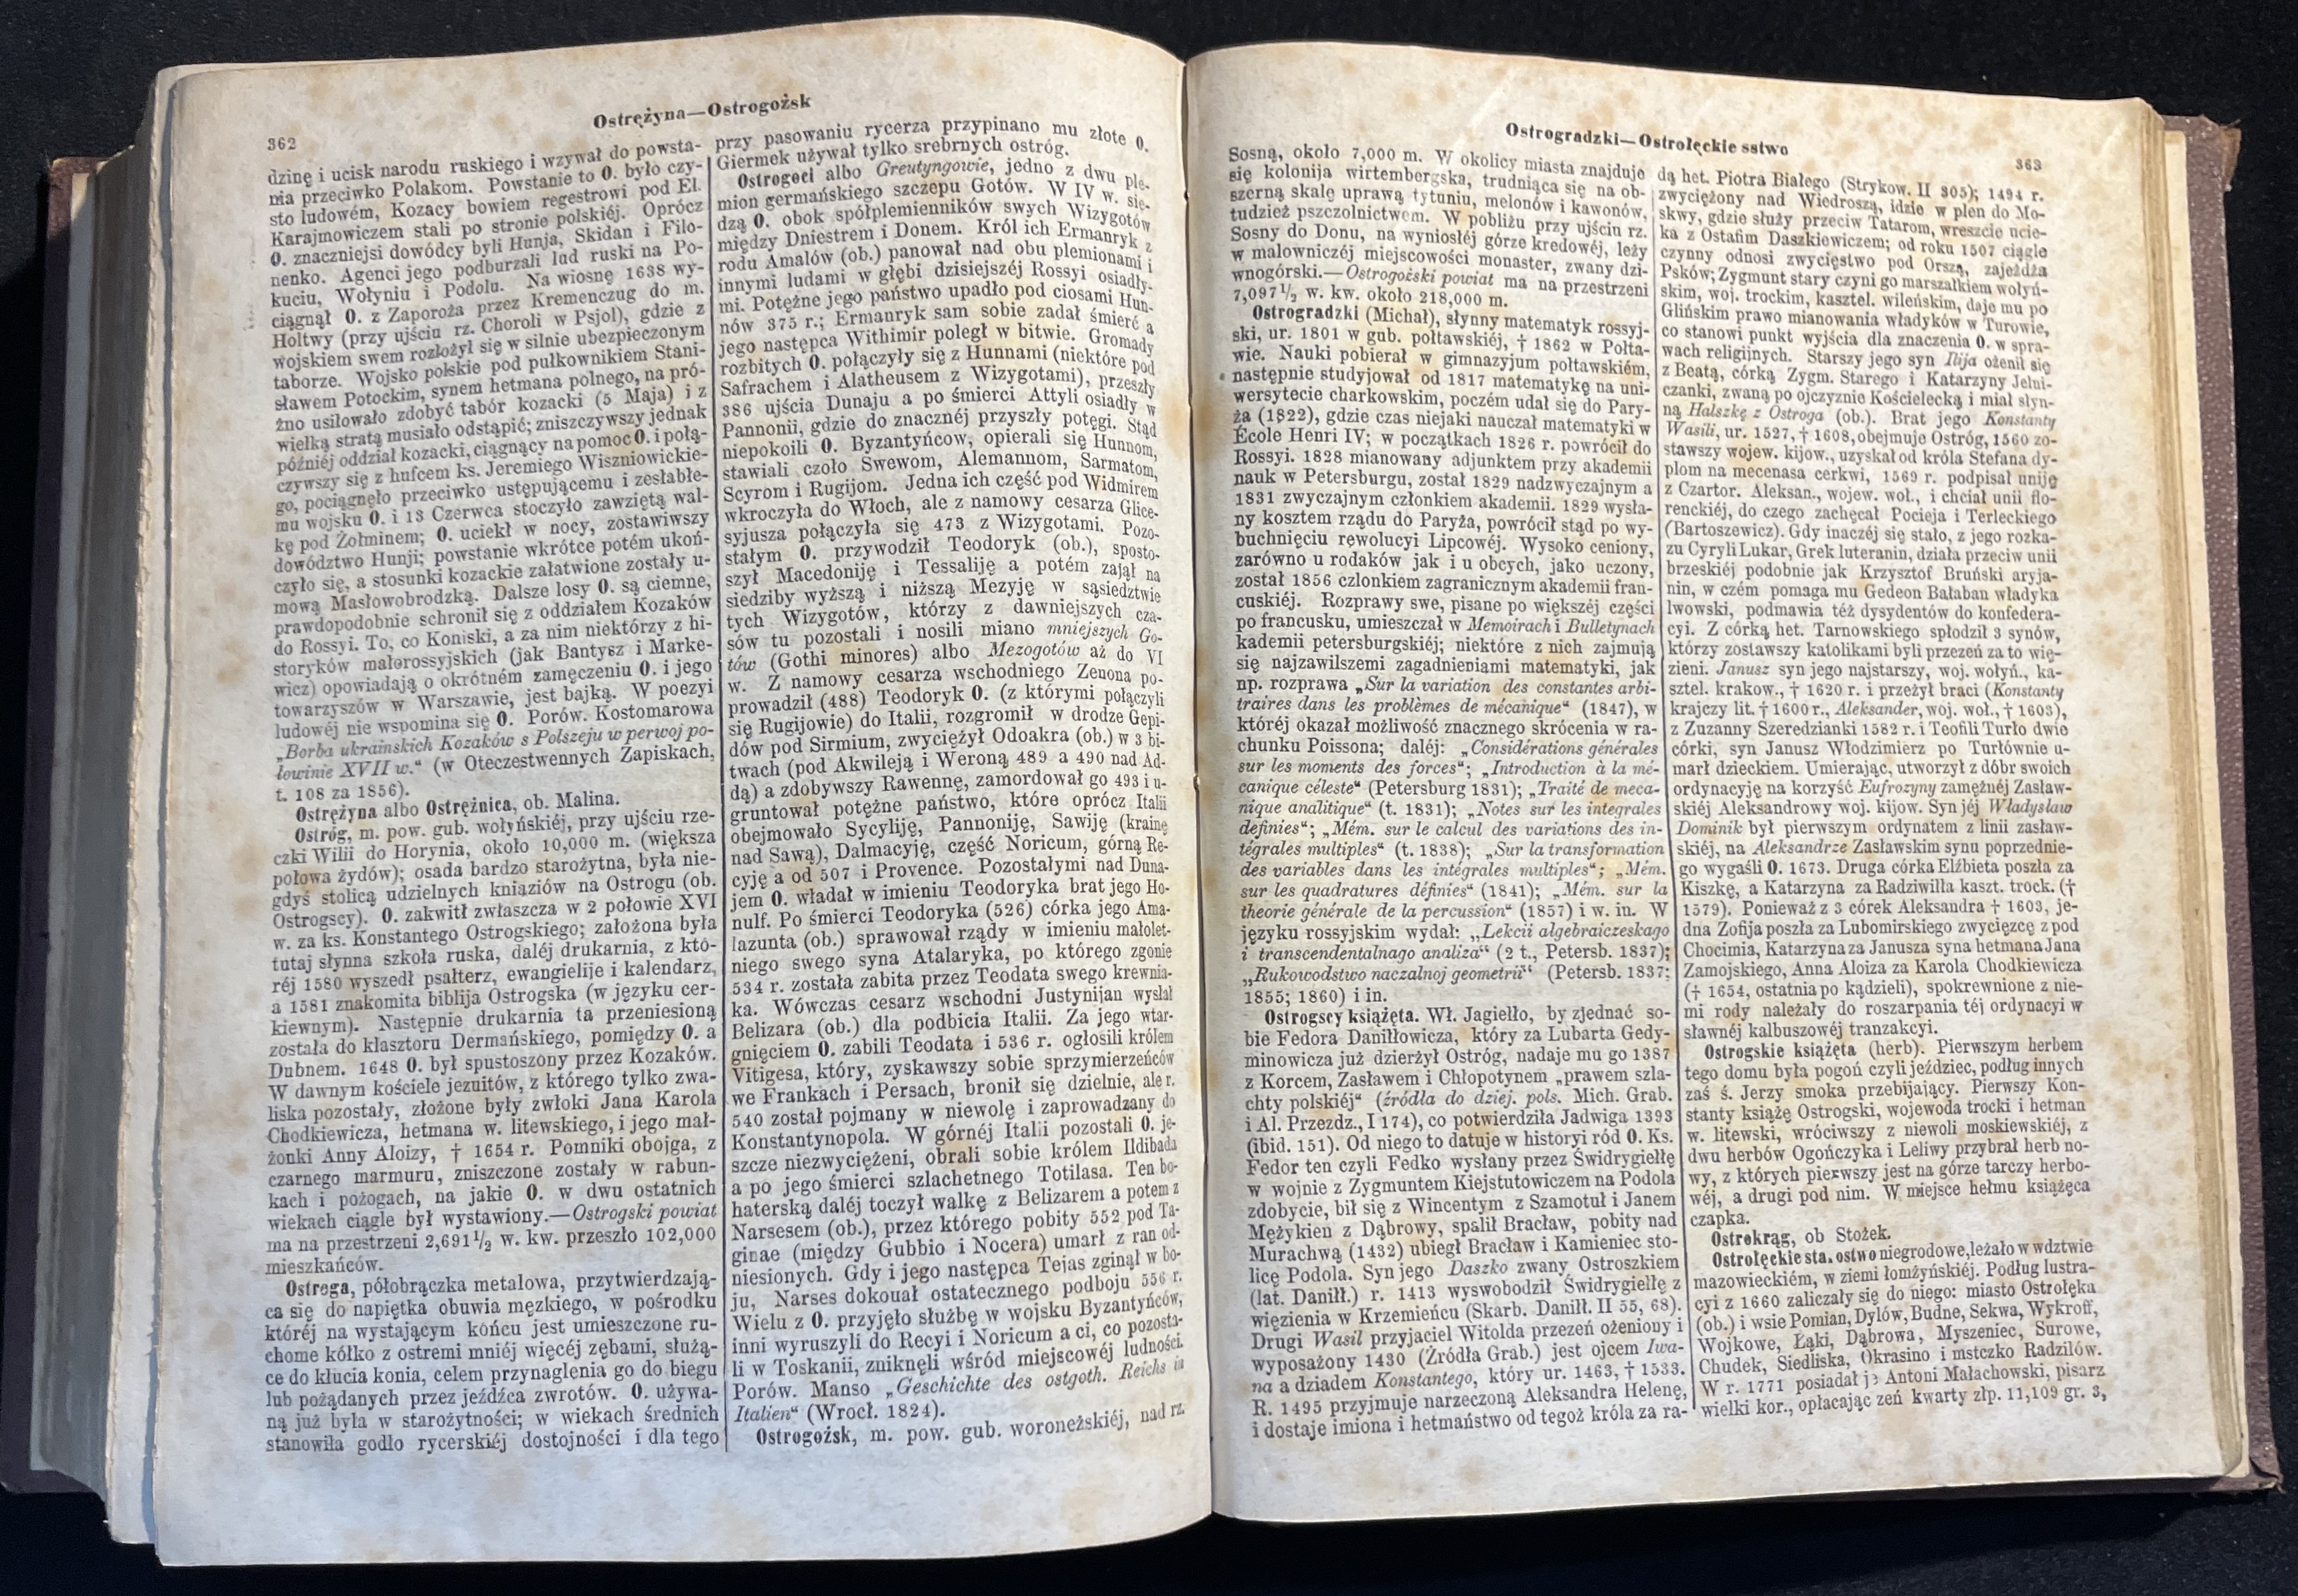 362
Ostrężyna—Ostrogożsk
dzinę i ucisk narodu ruskiego i wzywał do powsta-
nia przeciwko Polakom. Powstanie to O. było czy-
sto ludowém, Kozacy bowiem regestrowi pod El.
Karajmowiczem stali po stronie polskiéj. Oprócz
O. znaczniejsi dowódcy byli Hunja, Skidan i Filo-
nenko. Agenci jego podburzali lud ruski na Po-
kuciu, Wołyniu i Podolu. Na wiosnę 1638 wy-
ciągnął O. z Zaporoża przez Kremenczug do m.
Hołtwy (przy ujściu rz. Choroli w Psjol), gdzie z
wojskiem swem rozłożył się w silnie ubezpieczonym
taborze. Wojsko polskie pod pułkownikiem Stani-
sławem Potockim, synem hetmana polnego, na pró-
żno usiłowało zdobyć tabór kozacki (5 Maja) i z
wielką stratą musiało odstąpić; zniszczywszy jednak
późniéj oddział kozacki, ciągnący na pomoc O. i połą-
czywszy się z hufcem ks. Jeremiego Wiszniowickie-
go, pociągnęło przeciwko ustępującemu i zesłabłe-
mu wojsku O. i 13 Czerwca stoczyło zawziętą wal-
kę pod Żołminem; O. uciekł w nocy, zostawiwszy
dowództwo Hunji; powstanie wkrótce potém ukoń-
czyło się, a stosunki kozackie załatwione zostały u-
mową Masłowobrodzką. Dalsze losy O. są ciemne,
prawdopodobnie schronił się z oddziałem Kozaków
do Rossyi. To, co Koniski, a za nim niektórzy z hi-
storyków małorossyjskich (jak Bantysz i Marke-
wicz) opowiadają o okrótném zamęczeniu O. i jego
towarzyszów w Warszawie, jest bajką. W poezyi
ludowéj nie wspomina się O. Porów. Kostomarowa
„Borba ukrainskich Kozaków s Polszeju w perwoj po-
łowinie XVII w.“ (w Oteczestwennych Zapiskach,
t. 108 za 1856).
Ostrężyna albo Ostrężnica, ob. Malina.
Ostróg, m. pow. gub. wołyńskiéj, przy ujściu rze-
czki Wilii do Horynia, około 10,000 m. (większa
połowa żydów); osada bardzo starożytna, była nie-
gdyś stolicą udzielnych kniaziów na Ostrogu (ob.
Ostrogscy). O. zakwitł zwłaszcza w 2 połowie XVI
w. za ks. Konstantego Ostrogskiego; założona była
tutaj słynna szkoła ruska, daléj drukarnia, z któ-
réj 1580 wyszedł psałterz, ewangielije i kalendarz,
a 1581 znakomita biblija Ostrogska (w języku cer-
kiewnym). Następnie drukarnia ta przeniesioną
została do klasztoru Dermańskiego, pomiędzy O. a
Dubnem. 1648 O. był spustoszony przez Kozaków.
W dawnym kościele jezuitów, z którego tylko zwa-
liska pozostały, złożone były zwłoki Jana Karola
Chodkiewicza, hetmana w. litewskiego, i jego mał-
żonki Anny Aloizy, † 1654 r. Pomniki obojga, z
czarnego marmuru, zniszczone zostały w rabun-
kach i pożogach, na jakie O. w dwu ostatnich
wiekach ciągle był wystawiony.—Ostrogski powiat
ma na przestrzeni 2,691½ w. kw. przeszło 102,000
mieszkańców.
Ostroga, półobrączka metalowa, przytwierdzają-
ca się do napiętka obuwia męzkiego, w pośrodku
któréj na wystającym końcu jest umieszczone ru-
chome kółko z ostremi mniéj więcéj zębami, służą-
ce do kłucia konia, celem przynaglenia go do biegu
lub pożądanych przez jeźdźca zwrotów. O. używa-
ną już była w starożytności; w wiekach średnich
stanowiła godło rycerskiéj dostojności i dla tego
przy pasowaniu rycerza przypinano mu złote O.
Giermek używał tylko srebrnych ostróg.
Ostrogoci albo Greutyngowie, jedno z dwu ple-
mion germańskiego szczepu Gotów. W IV w. się-
dzą O. obok spółplemienników swych Wizygotów
między Dniestrem i Donem. Król ich Ermanryk z
rodu Amalów (ob.) panował nad obu plemionami i
innymi ludami w głębi dzisiejszéj Rossyi osiadły-
mi. Potężne jego państwo upadło pod ciosami Hun-
nów 375 r.; Ermanryk sam sobie zadał śmierć a
jego następca Withimir poległ w bitwie. Gromady
rozbitych O. połączyły się z Hunnami (niektóre pod
Safrachem i Alatheusem z Wizygotami), przeszły
386 ujścia Dunaju a po śmierci Attyli osiadły w
Pannonii, gdzie do znacznéj przyszły potęgi. Stąd
niepokoili O. Byzantyńcow, opierali się Hunnom,
stawiali czoło Swewom, Alemannom, Sarmatom,
Scyrom i Rugijom. Jedna ich część pod Widmirem
wkroczyła do Włoch, ale z namowy cesarza Glice-
syjusza połączyła się 473 z Wizygotami. Pozo-
stałym O. przywodził Teodoryk (ob.), sposto-
szył Macedoniję i Tessaliję a potém zajął na
siedziby wyższą i niższą Mezyję w sąsiedztwie
tych Wizygotów, którzy z dawniejszych cza-
sów tu pozostali i nosili miano mniejszych Go-
tów (Gothi minores) albo Mezogotów aż do VI
w. Z namowy cesarza wschodniego Zenona po-
prowadził (488) Teodoryk O. (z którymi połączyli
się Rugijowie) do Italii, rozgromił w drodze Gepi-
dów pod Sirmium, zwyciężył Odoakra (ob.) w 3 bi-
twach (pod Akwileją i Weroną 489 a 490 nad Ad-
dą) a zdobywszy Rawennę, zamordował go 493 i u-
gruntował potężne państwo, które oprócz Italii
obejmowało Sycyliję, Pannoniję, Sawiję (krainę
nad Sawą), Dalmacyję, część Noricum, górną Re-
cyję a od 507 i Provence. Pozostałymi nad Duna-
jem O. władał w imieniu Teodoryka brat jego Ho-
nulf. Po śmierci Teodoryka (526) córka jego Ama-
lazunta (ob.) sprawował rządy w imieniu małolet-
niego swego syna Atalaryka, po którego zgonie
534 r. została zabita przez Teodata swego krewnia-
ka. Wówczas cesarz wschodni Justynijan wysłał
Belizara (ob.) dla podbicia Italii. Za jego wtar-
gnięciem O. zabili Teodata i 536 r. ogłosili królem
Vitigesa, który, zyskawszy sobie sprzymierzeńców
we Frankach i Persach, bronił się dzielnie, ale r.
540 został pojmany w niewolę i zaprowadzany do
Konstantynopola. W górnéj Italii pozostali O. je-
szcze niezwyciężeni, obrali sobie królem Ildibada
a po jego śmierci szlachetnego Totilasa. Ten bo-
haterską daléj toczył walkę z Belizarem a potem z
Narsesem (ob.), przez którego pobity 552 pod Ta-
ginae (między Gubbio i Nocera) umarł z ran od-
niesionych. Gdy i jego następca Tejas zginął w bo-
ju, Narses dokouał ostatecznego podboju 556 r.
Wielu z O. przyjęło służbę w wojsku Byzantyńców,
inni wyruszyli do Recyi i Noricum a ci, co pozosta-
li w Toskanii, zniknęli wśród miejscowéj ludności.
Porów. Manso „Geschichte des ostgoth. Reichs in
Italien“ (Wrocł. 1824).
Ostrogożsk, m. pow. gub. woroneżskiéj, nad rz.
Ostrogradzki—Ostrołęckie sstwo
363
Sosną, około 7,000 m. W okolicy miasta znajduje
się kolonija wirtembergska, trudniąca się na ob-
szerną skalę uprawą tytuniu, melonów i kawonów,
tudzież pszczolnictwem. W pobliżu przy ujściu rz.
Sosny do Donu, na wyniosłéj górze kredowéj, leży
w malowniczéj miejscowości monaster, zwany dzi-
wnogórski.—Ostrogożski powiat ma na przestrzeni
7,097½ w. kw. około 218,000 m.
Ostrogradzki (Michał), słynny matematyk rossyj-
ski, ur. 1801 w gub. połtawskiéj, † 1862 w Połta-
wie. Nauki pobierał w gimnazyjum połtawskiém,
następnie studyjował od 1817 matematykę na uni-
wersytecie charkowskim, poczém udał się do Pary-
ża (1822), gdzie czas niejaki nauczał matematyki w
École Henri IV; w początkach 1826 r. powrócił do
Rossyi. 1828 mianowany adjunktem przy akademii
nauk w Petersburgu, został 1829 nadzwyczajnym a
1831 zwyczajnym członkiem akademii. 1829 wysła-
ny kosztem rządu do Paryża, powrócił stąd po wy-
buchnięciu rewolucyi Lipcowéj. Wysoko ceniony,
zarówno u rodaków jak i u obcych, jako uczony,
został 1856 członkiem zagranicznym akademii fran-
cuskiéj. Rozprawy swe, pisane po większéj części
po francusku, umieszczał w Memoirach i Bulletynach
kademii petersburgskiéj; niektóre z nich zajmują
się najzawilszemi zagadnieniami matematyki, jak
np. rozprawa „Sur la variation des constantes arbi-
traires dans les problèmes de mécanique“ (1847), w
któréj okazał możliwość znacznego skrócenia w ra-
chunku Poissona; daléj: „Considérations générales
sur les moments des forces“; „Introduction à la mé-
canique céleste“ (Petersburg 1831); „Traité de meca-
nique analitique“ (t. 1831); „Notes sur les integrales
definies“; „Mém. sur le calcul des variations des in-
tégrales multiples“ (t. 1838); „Sur la transformation
des variables dans les intégrales multiples“; „Mém.
sur les quadratures définies“ (1841); „Mém. sur la
theorie générale de la percussion“ (1857) i w. in. W
języku rossyjskim wydał: „Lekcii algebraiczeskago
i transcendentalnago analiza“ (2 t., Petersb. 1837);
„Rukowodstwo naczalnoj geometrii“ (Petersb. 1837;
1855; 1860) i in.
Ostrogscy książęta. Wł. Jagiełło, by zjednać so-
bie Fedora Daniłłowicza, który za Lubarta Gedy-
minowicza już dzierżył Ostróg, nadaje mu go 1387
z Korcem, Zasławem i Chłopotynem „prawem szla-
chty polskiéj“ (źródła do dziej. pols. Mich. Grab.
i Al. Przezdz., I 174), co potwierdziła Jadwiga 1393
(ibid. 151). Od niego to datuje w historyi ród O. Ks.
Fedor ten czyli Fedko wysłany przez Świdrygiełłę
w wojnie z Zygmuntem Kiejstutowiczem na Podola
zdobycie, bił się z Wincentym z Szamotuł i Janem
Mężykien z Dąbrowy, spalił Bracław, pobity nad
Murachwą (1432) ubiegł Bracław i Kamieniec sto-
licę Podola. Syn jego Daszko zwany Ostroszkiem
(lat. Daniłł.) r. 1413 wyswobodził Świdrygiełłę z
więzienia w Krzemieńcu (Skarb. Daniłł. II 55, 68).
Drugi Wasil przyjaciel Witolda przezeń ożeniony i
wyposażony 1430 (Źródła Grab.) jest ojcem Iwa-
na a dziadem Konstantego, który ur. 1463, † 1533.
R. 1495 przyjmuje narzeczoną Aleksandra Helenę,
i dostaje imiona i hetmaństwo od tegoż króla za ra-
dą het. Piotra Białego (Strykow. II 305); 1494 r.
zwyciężony nad Wiedroszą, idzie w plen do Mo-
skwy, gdzie służy przeciw Tatarom, wreszcie ucie-
ka z Ostafim Daszkiewiczem; od roku 1507 ciągle
czynny odnosi zwycięstwo pod Orszą, zajeżdża
Psków; Zygmunt stary czyni go marszałkiem wołyń-
skim, woj. trockim, kasztel. wileńskim, daje mu po
Glińskim prawo mianowania władyków w Turowie,
co stanowi punkt wyjścia dla znaczenia O. w spra-
wach religijnych. Starszy jego syn Ilija ożenił się
z Beatą, córką Zygm. Starego i Katarzyny Jelni-
czanki, zwaną po ojczyznie Kościelecką i miał słyn-
ną Halszkę z Ostroga (ob.). Brat jego Konstanty
Wasili, ur. 1527, † 1608, obejmuje Ostróg, 1560 zo-
stawszy wojew. kijow., uzyskał od króla Stefana dy-
plom na mecenasa cerkwi, 1569 r. podpisał uniję
z Czartor. Aleksan., wojew. woł., i chciał unii flo-
renckiéj, do czego zachęcał Pocieja i Terleckiego
(Bartoszewicz). Gdy inaczéj się stało, z jego rozka-
zu Cyryli Lukar, Grek luteranin, działa przeciw unii
brzeskiéj podobnie jak Krzysztof Bruński aryja-
nin, w czém pomaga mu Gedeon Bałaban władyka
lwowski, podmawia téż dysydentów do konfedera-
cyi. Z córką het. Tarnowskiego spłodził 3 synów,
którzy zostawszy katolikami byli przezeń za to wię-
zieni. Janusz syn jego najstarszy, woj. wołyń., ka-
sztel. krakow., † 1620 r. i przeżył braci (Konstanty
krajczy lit. † 1600 r., Aleksander, woj. woł., † 1603),
z Zuzanny Szeredzianki 1582 r. i Teofili Turło dwie
córki, syn Janusz Włodzimierz po Turłównie u-
marł dzieckiem. Umierając, utworzył z dóbr swoich
ordynacyję na korzyść Eufrozyny zamężnéj Zasław-
skiéj Aleksandrowy woj. kijow. Syn jéj Władysław
Dominik był pierwszym ordynatem z linii zasław-
skiéj, na Aleksandrze Zasławskim synu poprzednie-
go wygaśli O. 1673. Druga córka Elżbieta poszła za
Kiszkę, a Katarzyna za Radziwiłła kaszt. trock. (†
1579). Ponieważ z 3 córek Aleksandra † 1603, je-
dna Zofija poszła za Lubomirskiego zwycięzcę z pod
Chocimia, Katarzyna za Janusza syna hetmana Jana
Zamojskiego, Anna Aloiza za Karola Chodkiewicza
(† 1654, ostatnia po kądzieli), spokrewnione z nie-
mi rody należały do roszarpania téj ordynacyi w
sławnéj kalbuszowéj tranzakcyi.
Ostrogskie książęta (herb). Pierwszym herbem
tego domu była pogoń czyli jeździec, podług innych
zaś ś. Jerzy smoka przebijający. Pierwszy Kon-
stanty książę Ostrogski, wojewoda trocki i hetman
w. litewski, wróciwszy z niewoli moskiewskiéj, z
dwu herbów Ogończyka i Leliwy przybrał herb no-
wy, z których pierwszy jest na górze tarczy herbo-
wéj, a drugi pod nim. W miejsce hełmu książęca
czapka.
Ostrokrąg, ob Stożek.
Ostrołęckie sta.ostwo niegrodowe, leżało w wdztwie
mazowieckiém, w ziemi łomżyńskiéj. Podług lustra-
cyi z 1660 zaliczały się do niego: miasto Ostrołęka
(ob.) i wsie Pomian, Dylów, Budne, Sekwa, Wykroff,
Wojkowe, Łąki, Dąbrowa, Myszeniec, Surowe,
Chudek, Siedliska, Okrasino i mstczko Radziłów.
W r. 1771 posiadał je Antoni Małachowski, pisarz
wielki kor., opłacając zeń kwarty złp. 11,109 gr. 3,